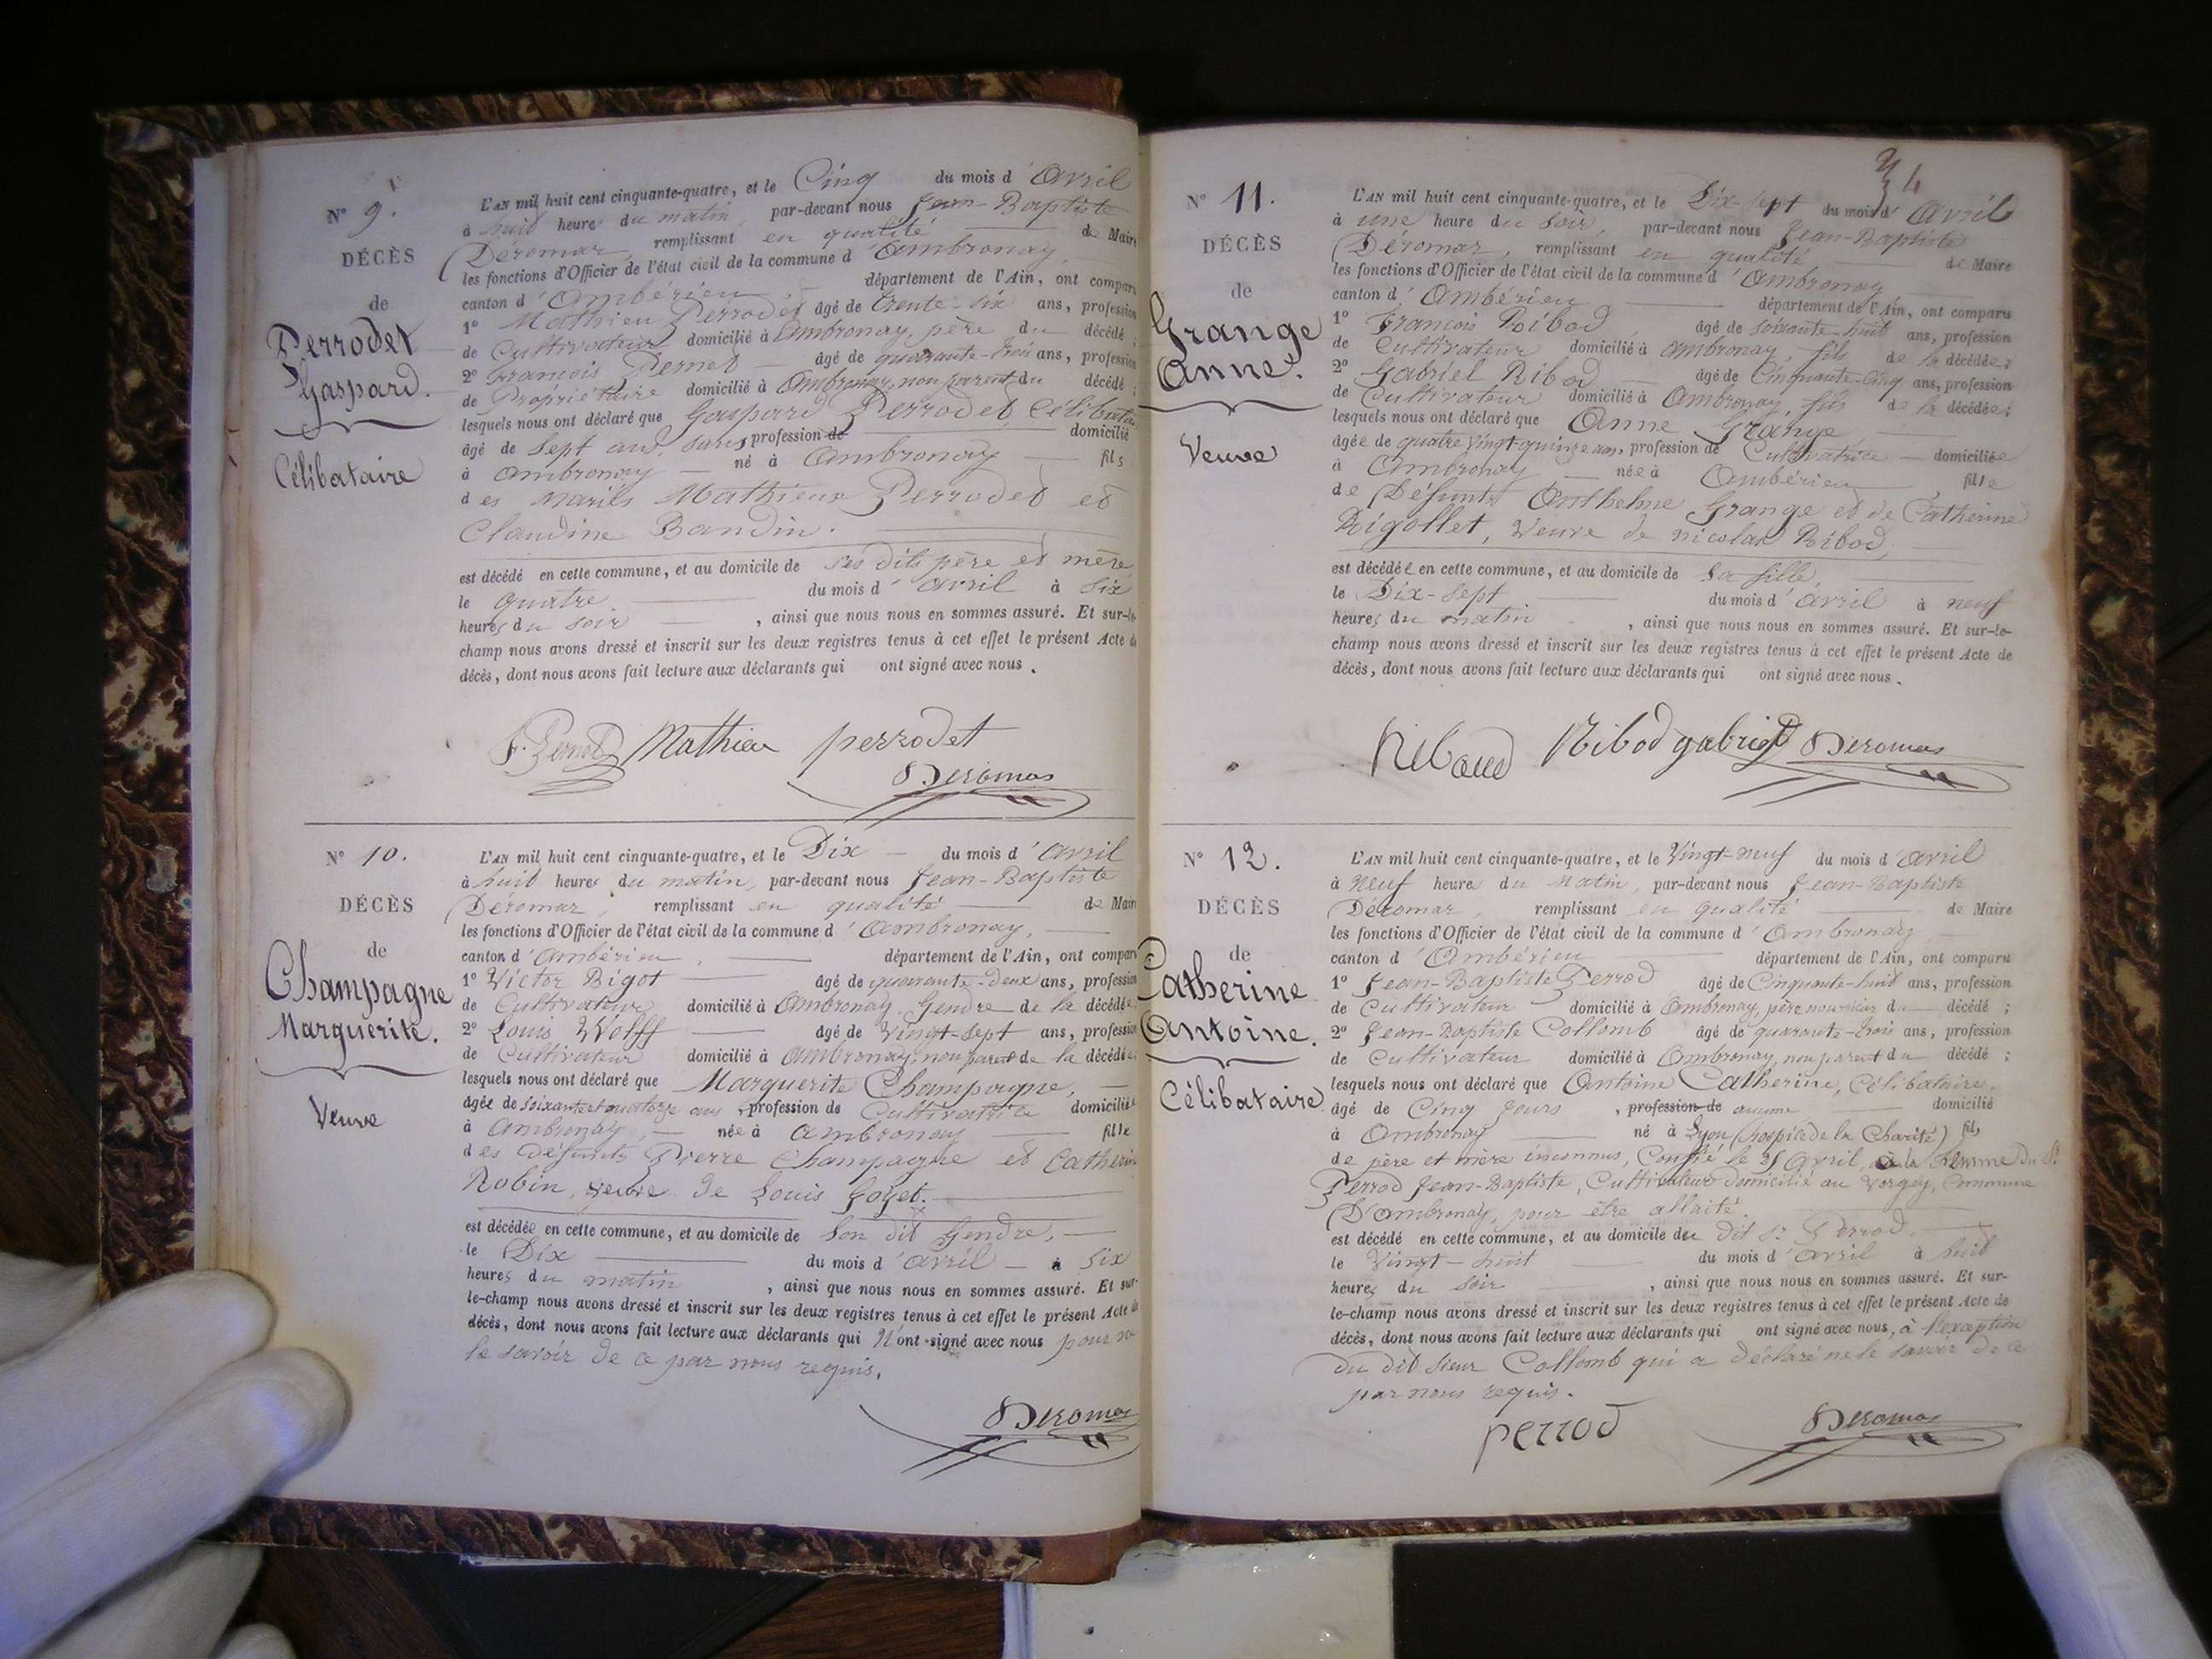 N° 9.
DÉCÈS
de
Perrodet
Gaspard.
Célibataire
L'AN mil huit cent cinquante-quatre, et le Cinq du mois d'avril
à huit heures du matin, par-devant nous Jean-Baptiste
Déromas, remplissant en qualité de Maire
les fonctions d'Officier de l'état civil de la commune d'Ambronay,
canton d'Ambérieu, département de l'Ain, ont comparu
1° Mathieu Perrodet âgé de trente-six ans, profession
de Cultivateur domicilié à Ambronay, père du décédé ;
2° François Pernet âgé de quarante-trois ans, profession
de Propriétaire domicilié à Ambronay, non parent du décédé ;
lesquels nous ont déclaré que Gaspard Perrodet, Célibataire
âgé de Sept ans, sans profession de domicilié
à Ambronay né à Ambronay fils
des mariés Mathieu Perrodet et
Claudine Bandin.
est décédé en cette commune, et au domicile de ses dits père et mère
le quatre du mois d'avril à six
heures du soir, ainsi que nous nous en sommes assuré. Et sur-le-
champ nous avons dressé et inscrit sur les deux registres tenus à cet effet le présent Acte de
décès, dont nous avons fait lecture aux déclarants qui ont signé avec nous.
F. Pernet Mathieu perrodet
Deromas
N° 10.
DÉCÈS
de
Champagne
Marguerite.
Veuve
L'AN mil huit cent cinquante-quatre, et le Dix du mois d'avril
à huit heures du matin, par-devant nous Jean-Baptiste
Déromas, remplissant en qualité de Maire
les fonctions d'Officier de l'état civil de la commune d'Ambronay,
canton d'Ambérieu, département de l'Ain, ont comparu
1° Victor Bigot âgé de quarante-deux ans, profession
de Cultivateur domicilié à Ambronay, Gendre de la décédée
2° Louis Wolff âgé de Vingt-sept ans, profession
de Cultivateur domicilié à Ambronay, non parent de la décédée
lesquels nous ont déclaré que Marguerite Champagne,
âgée de soixante et quatorze ans, profession de Cultivatrice domiciliée
à Ambronay, née à Ambronay fille
des défunts Pierre Champagne et Catherine
Robin, veuve de Louis Goyet.
est décédée en cette commune, et au domicile de son dit Gendre,
le Dix du mois d'avril à six
heures du matin, ainsi que nous nous en sommes assuré. Et sur-
le-champ nous avons dressé et inscrit sur les deux registres tenus à cet effet le présent Acte de
décès, dont nous avons fait lecture aux déclarants qui N'ont signé avec nous pour ne
le savoir de ce par nous requis.
Deromas
34
N° 11.
DÉCÈS
de
Grange
Anne.
Veuve
L'AN mil huit cent cinquante-quatre, et le Dix-sept du mois d'avril
à une heure du soir, par-devant nous Jean-Baptiste
Déromas, remplissant en qualité de Maire
les fonctions d'Officier de l'état civil de la commune d'Ambronay
canton d'Ambérieu département de l'Ain, ont comparu
1° François Ribod âgé de soixante-huit ans, profession
de Cultivateur domicilié à Ambronay, fils de la décédée ;
2° Gabriel Ribod âgé de Cinquante-Cinq ans, profession
de Cultivateur domicilié à Ambronay, fils de la décédée ;
lesquels nous ont déclaré que Anne Grange,
âgée de quatre vingt quinze ans, profession de Cultivatrice domiciliée
à Ambronay née à Ambérieu fille
de Défunts Anthelme Grange et de Catherine
Rigollet, Veuve de nicolas Ribod,
est décédée en cette commune, et au domicile de Sa fille,
le Dix-sept du mois d'avril à neuf
heures du matin, ainsi que nous nous en sommes assuré. Et sur-le-
champ nous avons dressé et inscrit sur les deux registres tenus à cet effet le présent Acte de
décès, dont nous avons fait lecture aux déclarants qui ont signé avec nous.
Ribaud Ribod gabriel Deromas
N° 12.
DÉCÈS
de
Catherine
Antoine.
Célibataire
L'AN mil huit cent cinquante-quatre, et le Vingt-neuf du mois d'avril
à Neuf heures du Matin, par-devant nous Jean-Baptiste
Déromas, remplissant en qualité de Maire
les fonctions d'Officier de l'état civil de la commune d'Ambronay
canton d'Ambérieu département de l'Ain, ont comparu
1° Jean-Baptiste Perrod âgé de Cinquante-huit ans, profession
de Cultivateur domicilié à Ambronay, père nourricier du décédé ;
2° Jean-Baptiste Collomb âgé de quarante-trois ans, profession
de Cultivateur domicilié à Ambronay, non parent du décédé ;
lesquels nous ont déclaré que Antoine Catherine, Célibataire,
âgé de Cinq Jours, profession de aucune domicilié
à Ambronay né à Lyon (hospice de la Charité) fils
de père et mère inconnus, Confié le 25 Avril, à la femme du Sr
Perrod Jean-Baptiste, Cultivateur domicilié au Vorgey, Commune
D'ambronay, pour être allaité.
est décédé en cette commune, et au domicile du dit Sr Perrod,
le Vingt-huit du mois d'avril à huit
heures du Soir, ainsi que nous nous en sommes assuré. Et sur-
le-champ nous avons dressé et inscrit sur les deux registres tenus à cet effet le présent Acte de
décès, dont nous avons fait lecture aux déclarants qui ont signé avec nous, à l'exception
du dit sieur Collomb qui a déclaré ne le savoir de ce
par nous requis.
perrod Deromas